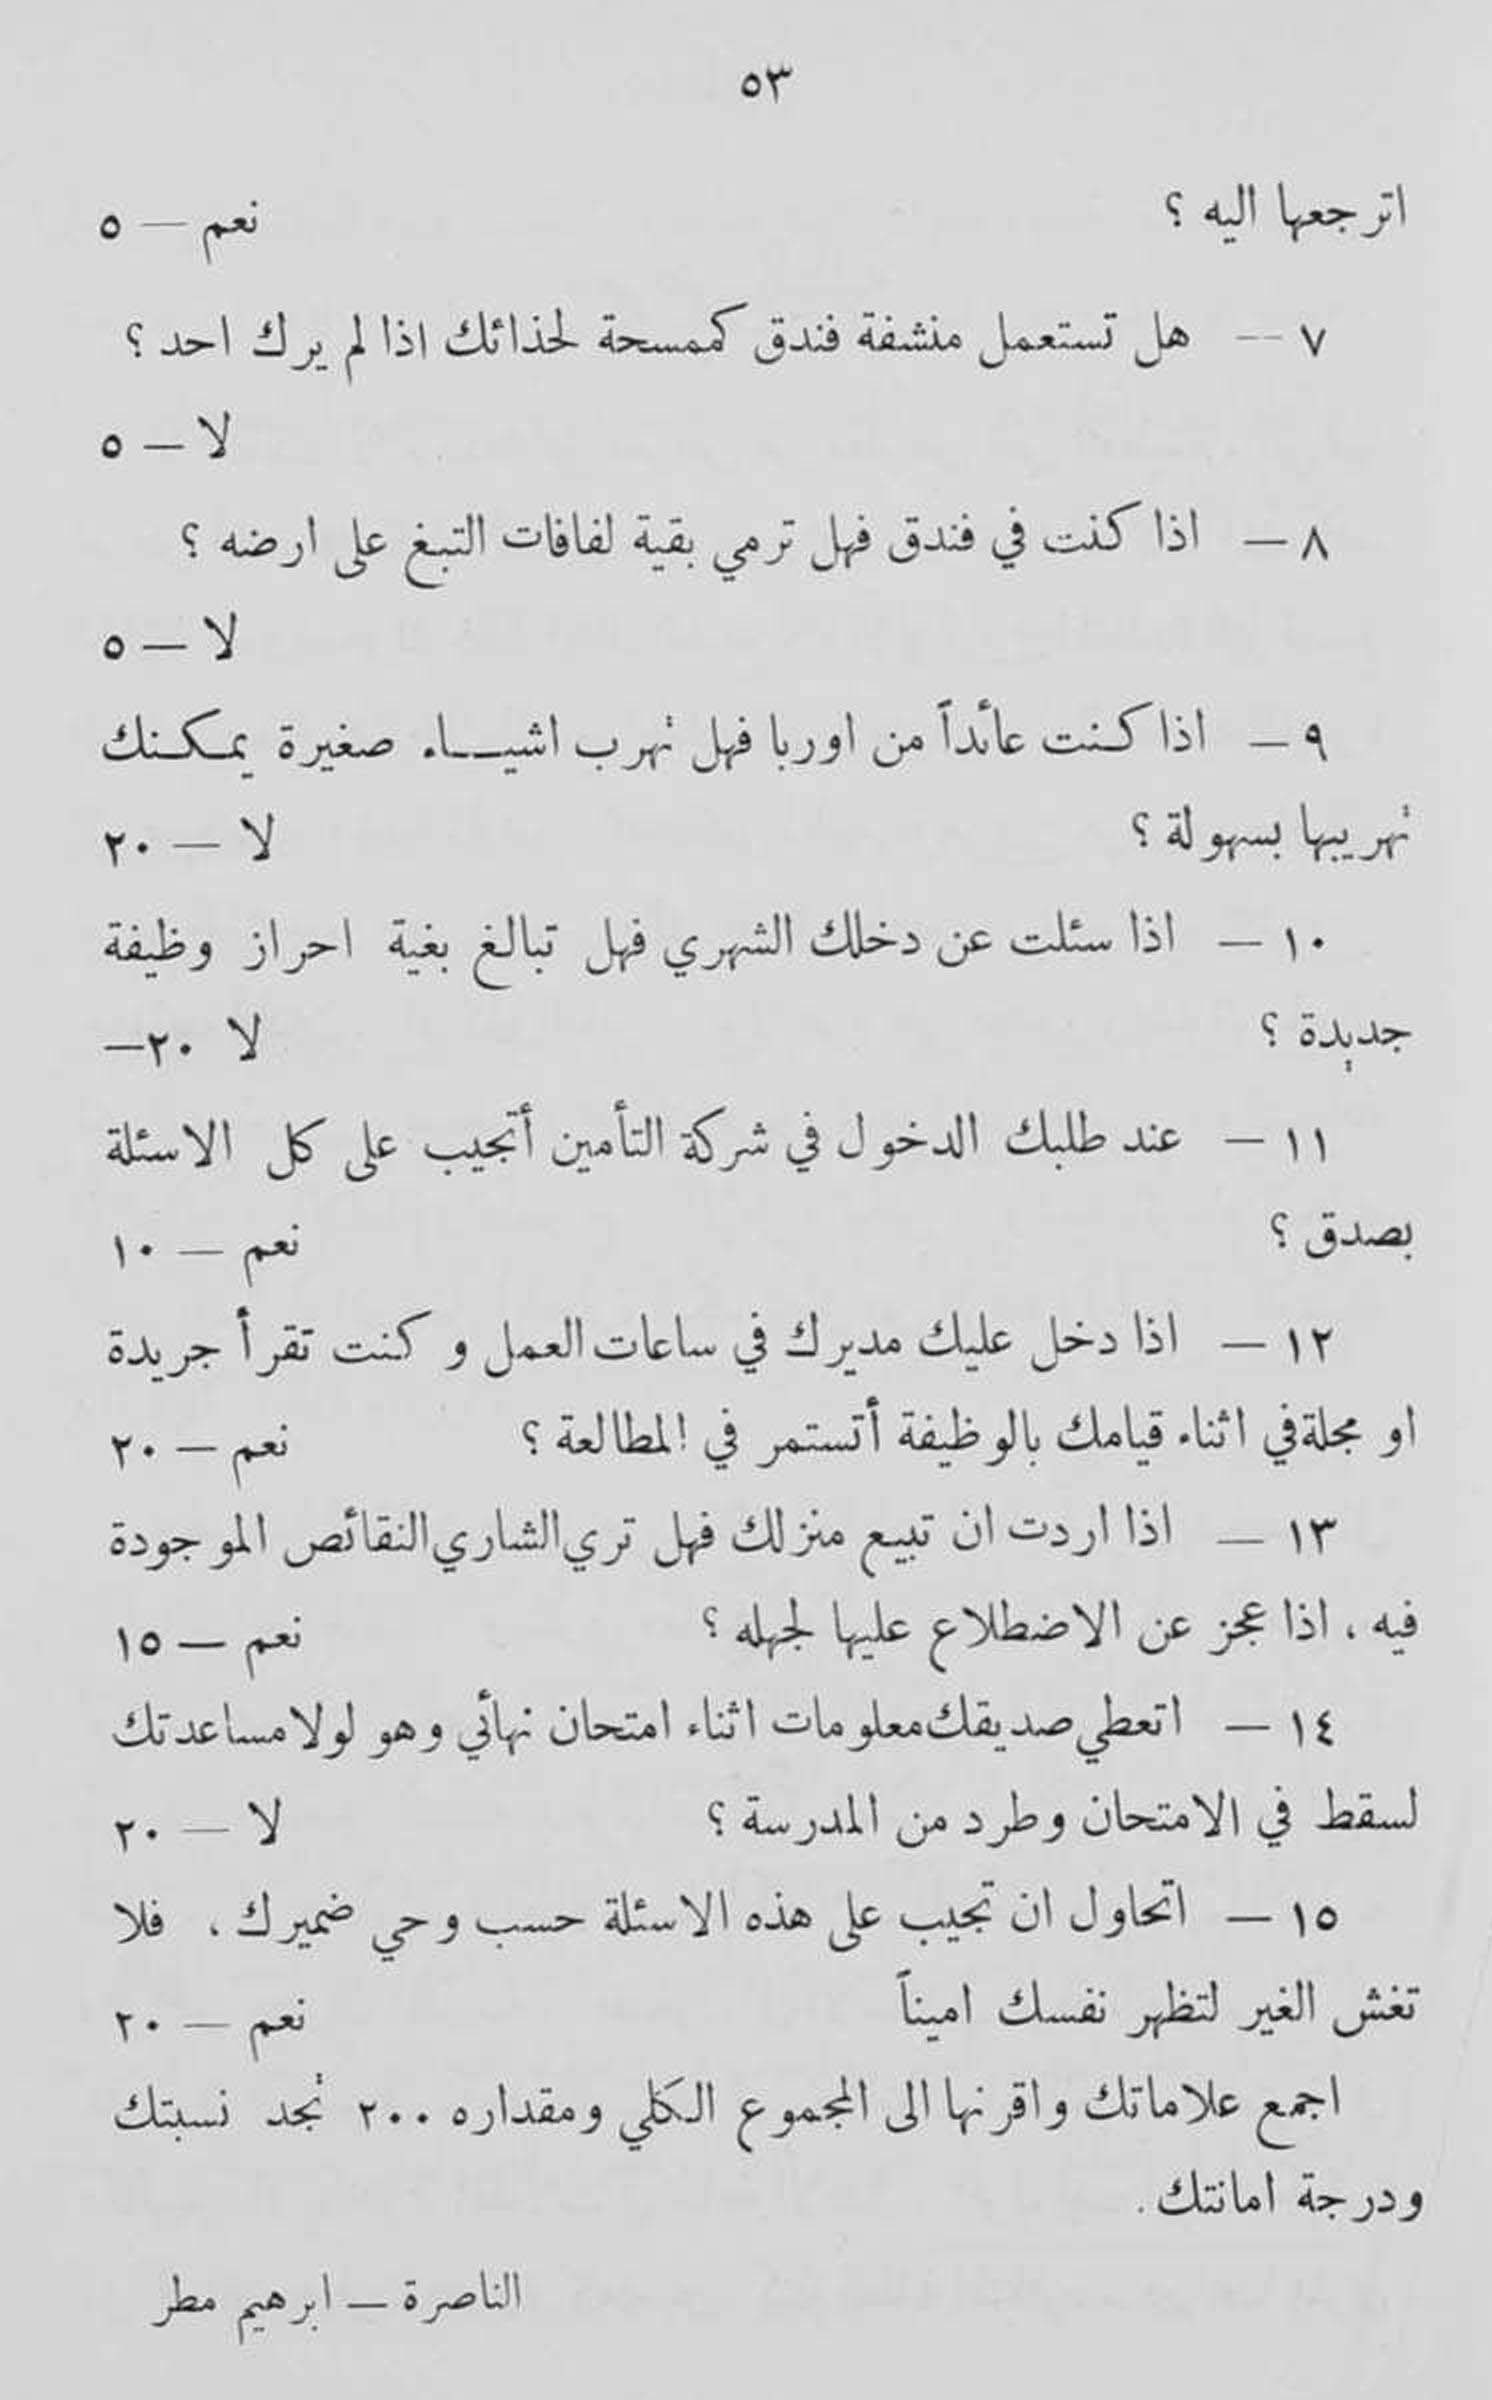 ٥٣
اترجعها اليه ؟ نعم — ٥
٧ — هل تستعمل منشفة فندق كممسحة لحذائك اذا لم يرك احد ؟
لا — ٥
٨ — اذا كنت في فندق فهل ترمي بقية لفافات التبغ على ارضه ؟
لا — ٥
٩ — اذا كنت عائداً من اوربا فهل تهرب اشيـاء صغيرة يمكنك
تهريبها بسهولة ؟ لا — ٢٠
١٠ — اذا سئلت عن دخلك الشهري فهل تبالغ بغية احراز وظيفة
جديدة ؟ لا ٢٠—
١١ — عند طلبك الدخول في شركة التأمين أتجيب على كل الاسئلة
بصدق ؟ نعم — ١٠
١٢ — اذا دخل عليك مديرك في ساعات العمل وكنت تقرأ جريدة
او مجلة في اثناء قيامك بالوظيفة أتستمر في المطالعة ؟ نعم — ٢٠
١٣ — اذا اردت ان تبيع منزلك فهل تري الشاري النقائص الموجودة
فيه ، اذا عجز عن الاضطلاع عليها لجهله ؟ نعم — ١٥
١٤ — اتعطي صديقك معلومات اثناء امتحان نهائي وهو لولا مساعدتك
لسقط في الامتحان وطرد من المدرسة ؟ لا — ٢٠
١٥ — اتحاول ان تجيب على هذه الاسئلة حسب وحي ضميرك ، فلا
تغش الغير لتظهر نفسك اميناً نعم — ٢٠
اجمع علاماتك واقرنها الى المجموع الكلي ومقداره ٢٠٠ تجد نسبتك
ودرجة امانتك .
الناصرة — ابرهيم مطر